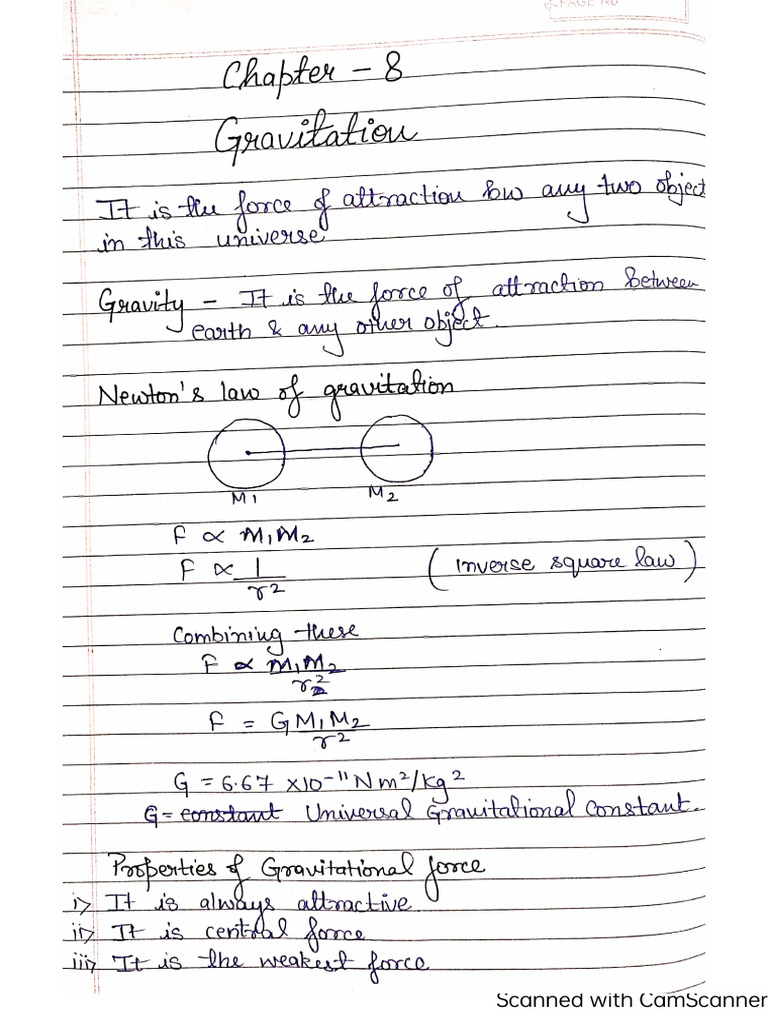 PAGE NO
Chapter - 8
Gravitation
It is the force of attraction b/w any two object
in this universe
Gravity - It is the force of attraction between
earth & any other object.
Newton's law of gravitation
M1 M2
F ∝ M1M2
F ∝ 1/r² (inverse square law)
Combining these
F ∝ M1M2/r²
F = GM1M2/r²
G = 6.67 ×10⁻¹¹ Nm²/kg²
G = constant Universal Gravitational Constant.
Properties of Gravitational force
i> It is always attractive
ii> It is central force
iii> It is the weakest force
Scanned with CamScanner